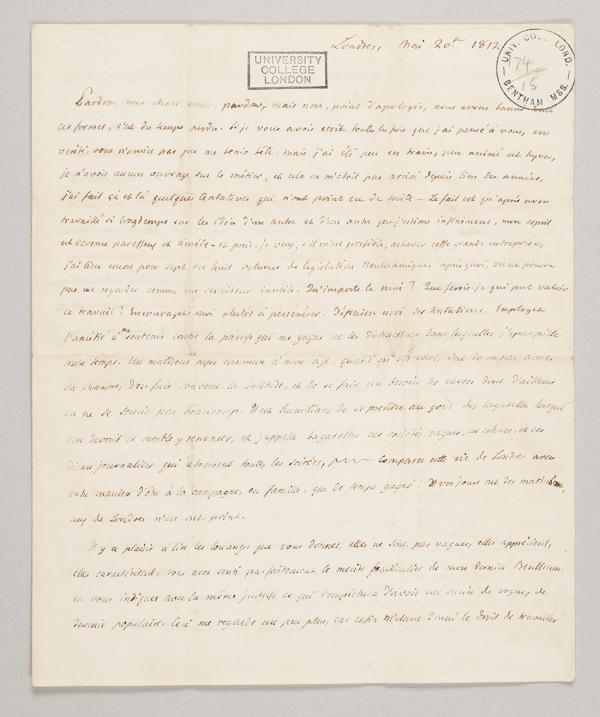 Londres, Mai 20. 1812
UNIVERSITY
COLLEGE
LONDON
UNIV. COLL. LOND.
74
15
BENTHAM MSS.
Pardon, mes chers amis, pardon, mais non, point d'apologie, nous avons banni
ces formes, c'est du temps perdu. Si je vous avois ecrit toutes les fois que j'ai pensé à vous, en
verité, vous n'auriez pas pu me tenir tête. mais j'ai été peu en train, peu animé cet hyver,
je n'avois aucun ouvrage sur le métier, et cela ne m'étoit pas arrivé depuis bien des années,
j'ai fait çà et là quelques tentatives qui n'ont point eu de suite – Le fait est qu'après avoir
travaillé si longtemps sur les idées d'un autre et d'un autre que j'estime infiniment, mon esprit
est devenu paresseux et timide – et puis, je veux, s'il m'est possible, achever cette grande entreprise,
j'ai bien encor pour sept ou huit volumes de legislation Benthamique, après quoi, on ne pourra
pas me regarder comme un serviteur inutile. Qu'importe le moi? Que ferois-je qui put valoir
ce travail? Encouragez moi plutôt à persévérer. Défendez moi des tentations. Employez
l'amitié à me soutenir contre la paresse qui me gagne et les distractions dans lesquelles j'eparpille
mon temps. Un malheur assez commun à mon age, quand on vit seul, c'est de ne pas aimer
sa chambre, d'en faire souvent la solitude, et de se faire un besoin de choses dont d'ailleurs
on ne se soucie pas beaucoup. Il est humiliant de se prendre au gout des bagatelles lorsque
l'on devroit ce semble y renoncer, et j'appelle bagatelles ces sociétés vagues, ces cohues, et ces
diners journaliers qui absorbent toutes les soirées, comparez cette vie de Londres avec
votre maniere d'être à la campagne, en famille, que de temps gagné! Vos jours ont des matinées,
ceux de Londres n'en ont point.
Il y a plaisir à lire les louanges que vous donnez, elles ne sont pas vagues, elles apprécient,
elles caractérisent, vous avez senti parfaitement le merite particulier de mon dernier Bentham,
et vous indiquez avec la même justesse ce qui l'empêchera d'avoir un succès de vogue, de
devenir populaire. Ceci me regarde un peu plus, car enfin m'étant donné le droit de travailler